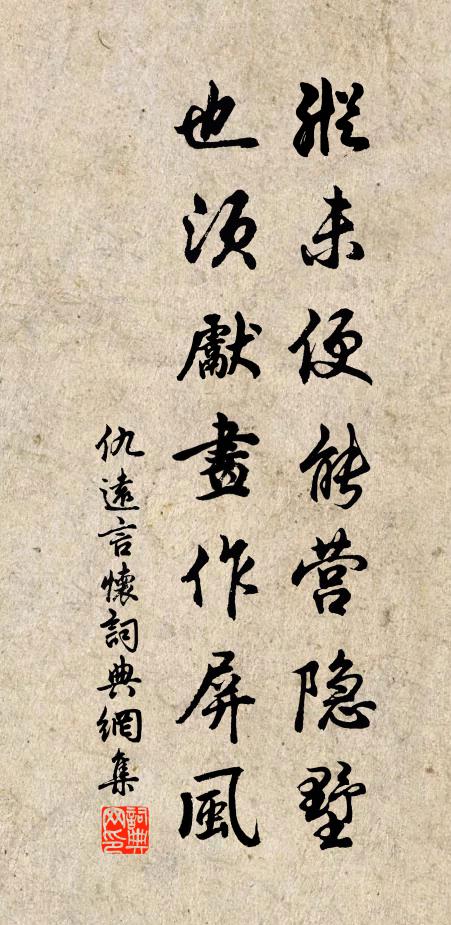 縱未便能营隐墅
也须獻畫作屏風
仇遠言懷詞典網集
詞典网印